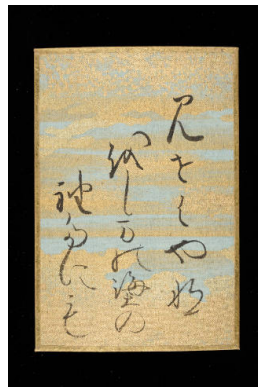 見せはやな
をしまの海の
袖たにも